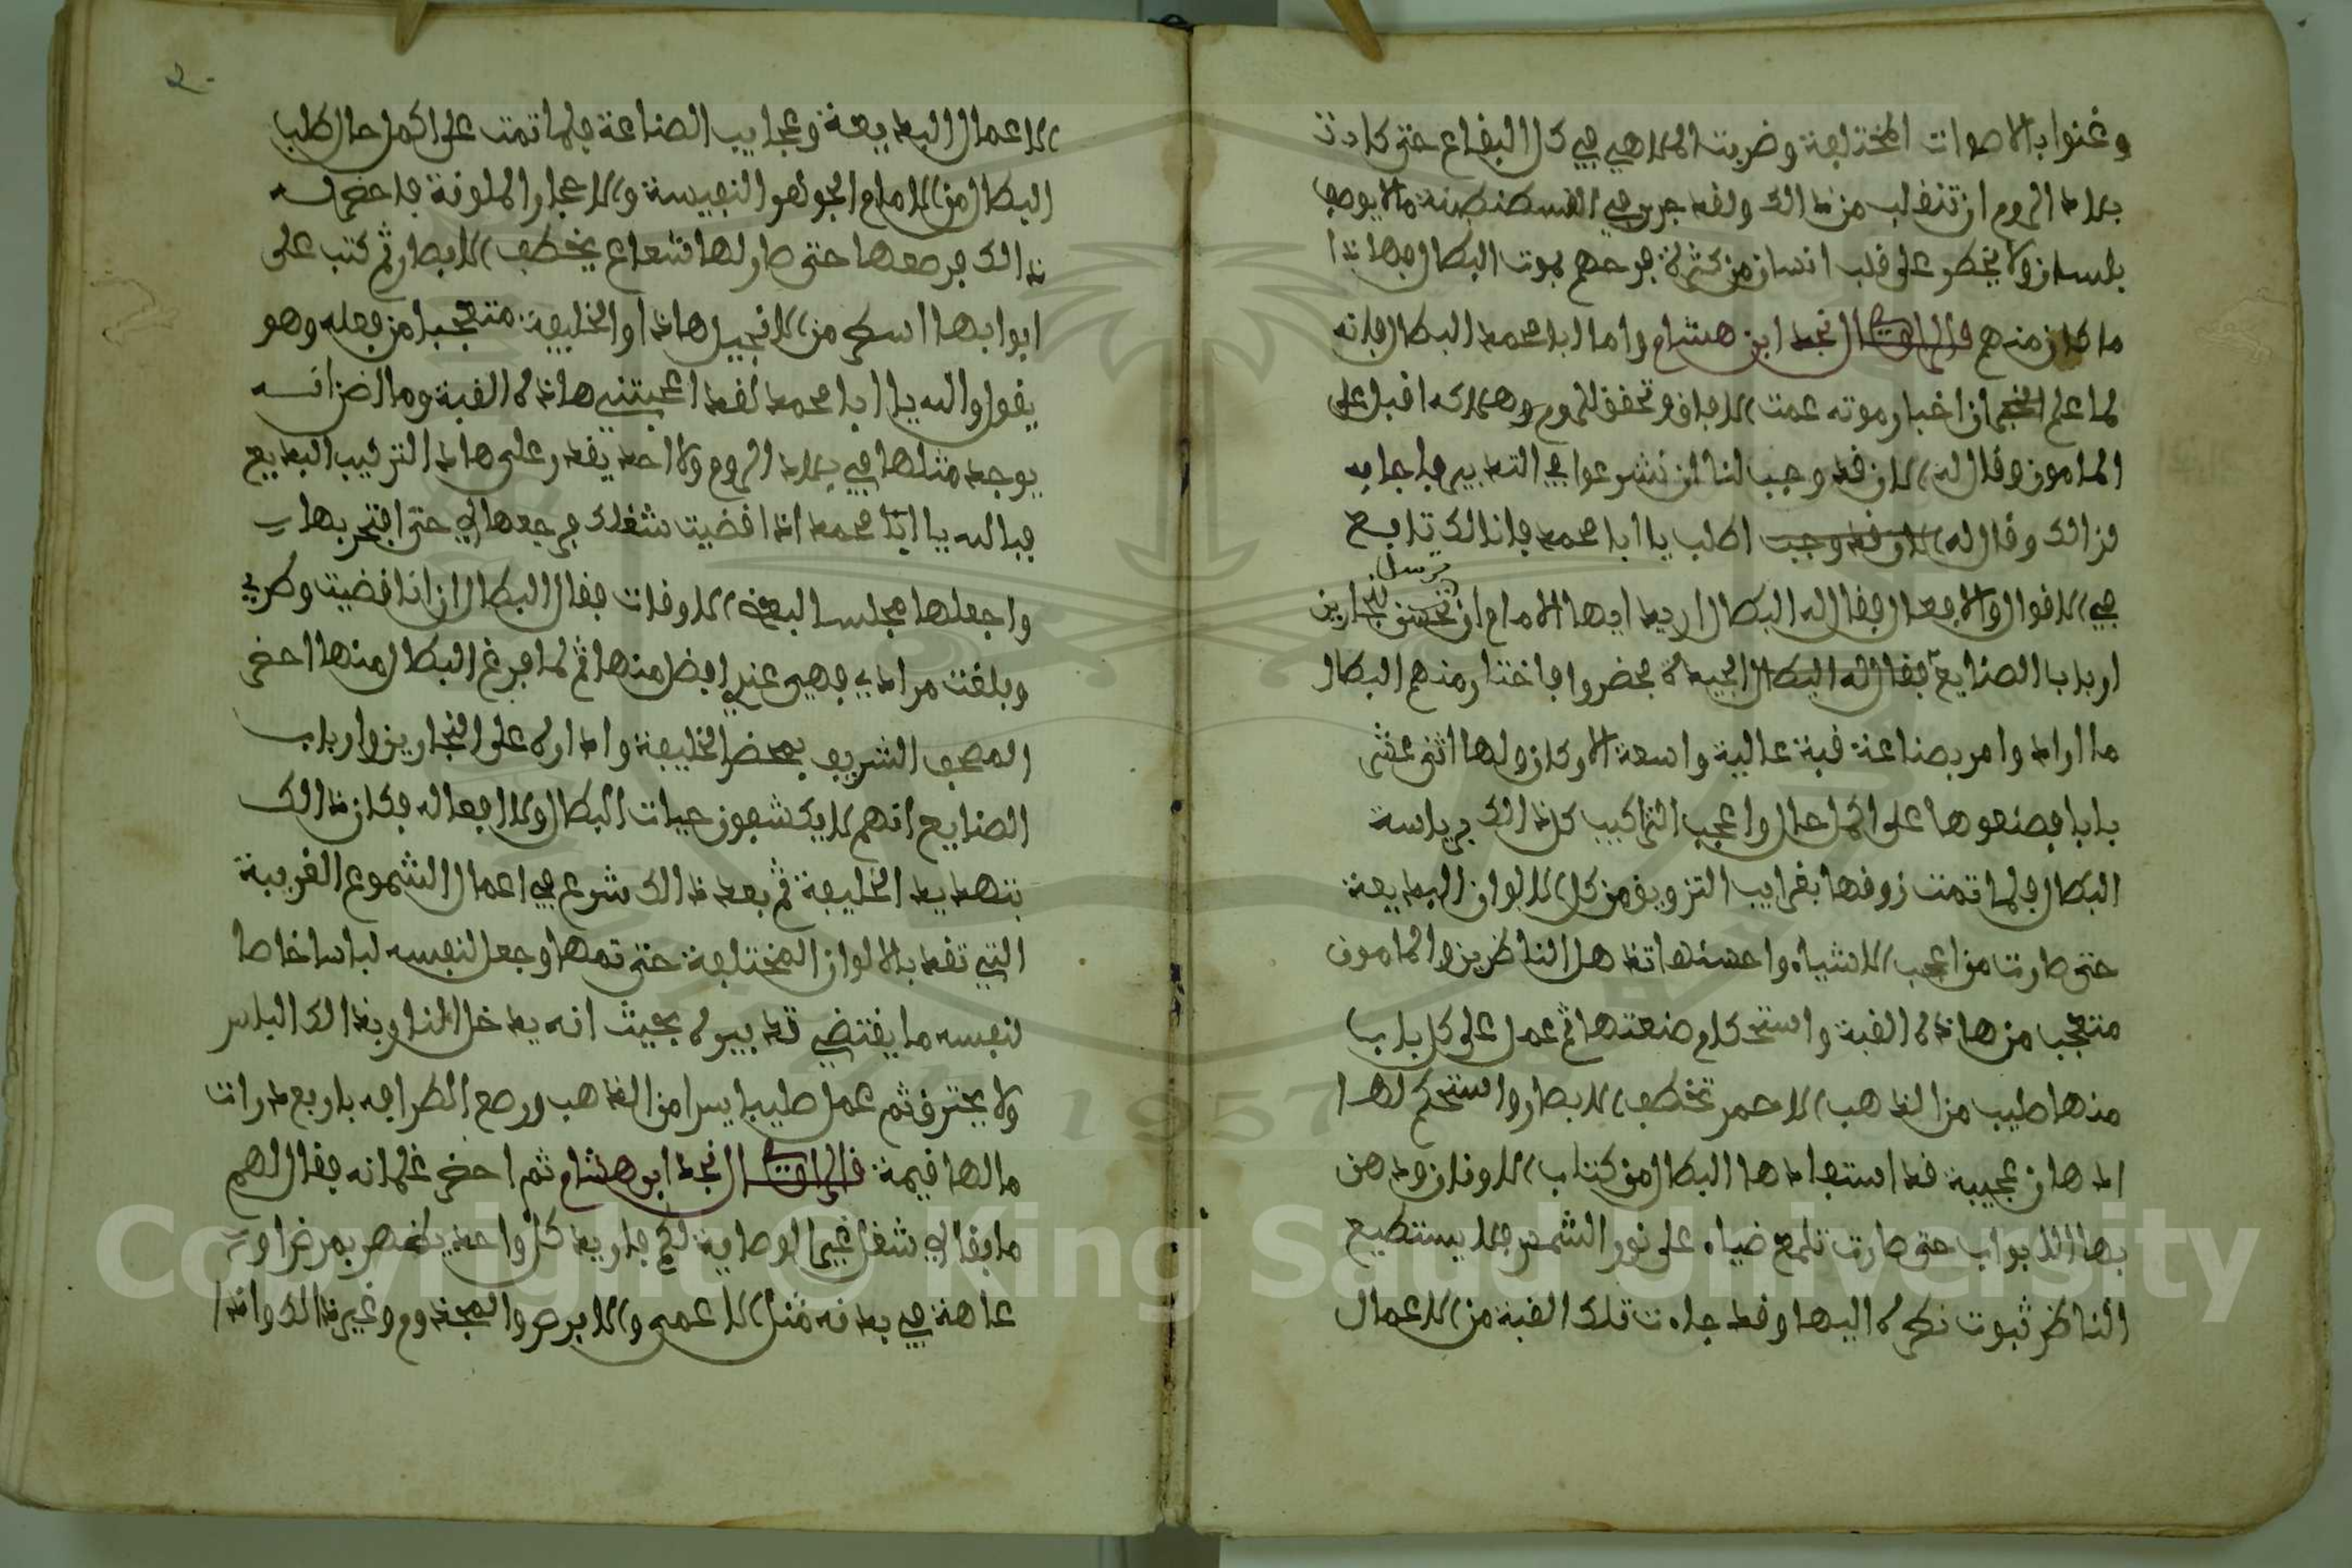 وغنوا بالاصوات المختلفة وضربت الملاهي في كل البقاع حتى كادت
بلاد الروم ان تنقلب من ذالك ولقد جرى في القسطنطينة ما لا يوصف
بلسان ولا يخطر على قلب انسان من كثرة فرحهم بموت البطال فهاذا
ما كان منهم قال الراوي نجد ابن هشام واما ابا محمد البطال فانه
لما علم الخبر ان اخبار موته عمت الافاق وتحقق للروم هلاكه اقبل على
المامون وقال له الان قد وجب لنا ان نشرعوا في التدبير فاجابه
لذالك وقال له الان قد وجب اطلب يا ابا محمد فانا لك تابع
ترسل
في الاقوال والافعال فقال له البطال اريد ايها الامام ان تحسن للنجارين
ارباب الصنايع فقال له البطال الجيدة فحضروا فاختار منهم البطال
ما اراد وامر بصناعة قبة عالية واسعة الاركان ولها اثنى عشر
بابا فصنعوها على اكمل حال واعجب التراكيب كل ذالك برياسة
البطال فلما تمت زوقها بغرايب التزويق من كل الالوان البديعة
حتى صارت من اعجب الاشياء واحسنها تذهل الناظرين والمامون
متعجب من هاذه القبة واستحكام صنعتها ثم عمل على كل باب
منها طيب من الذهب الاحمر تخطف الابصار واستحكم لها
ادهان عجيبة قد استفادها البطال من كتاب اليونان ودهن
بها الابواب حتى صارت تلمع ضياء على نور الشمس فلا يستطيع
الناظر ثبوت نظره اليها وقد جاءت تلك القبة من الاعمال
٢٠
الاعمال البديعة وعجايب الصناعة فلما تمت على اكمل حال طلب
البطال من الامام الجواهر النفيسة والاحجار الملونة فاحضر له
ذالك فرصعها حتى صار لها شعاع يخطف الابصار ثم كتب على
ابوابها اسطر من الانجيل هاذا والخليفة متعجبا من فعله وهو
يقول والله يا ابا محمد لقد اعجبتني هاذه القبة وما اضن انه
يوجد مثلها في بلاد الروم ولا احد يقدر على هاذا التركيب البديع
فبالله يا ابا محمد اذا قضيت شغلك فرجعها لي حتى افتخر بها
واجعلها مجلسا لبعض الاوقات فقال البطال ان انا قضيت وطري
وبلغت مرادي فهي عندي افضل منها ثم لما فرغ البطال منها احضر
المصحف الشريف بمحضر الخليفة واداره على النجارين وارباب
الصنايع انهم لا يكشفون حيات البطال ولا افعاله فكان ذالك
بتهديد الخليفة ثم بعد ذالك شرع في اعمال الشموع الغريبة
التي تقد بالالوان المختلفة حتى تمها وجعل لنفسه لباسا خاصا
لنفسه ما يقتضي تدبيره بحيث انه يدخل النار وبذالك الباس
ولا يحترق ثم عمل صليبا يسرا من الذهب ورصع اطرافه باربع درات
ما لها قيمة قال الراوي نجد ابن هشام ثم احضر غلمانه فقال لهم
ما بقا لي شغل غير الوصاية لكم فاريد كل واحد يختصر بمرض او
عاهة في بدنه مثل الاعمى والابرص والمجذوم وغير ذالك واذا